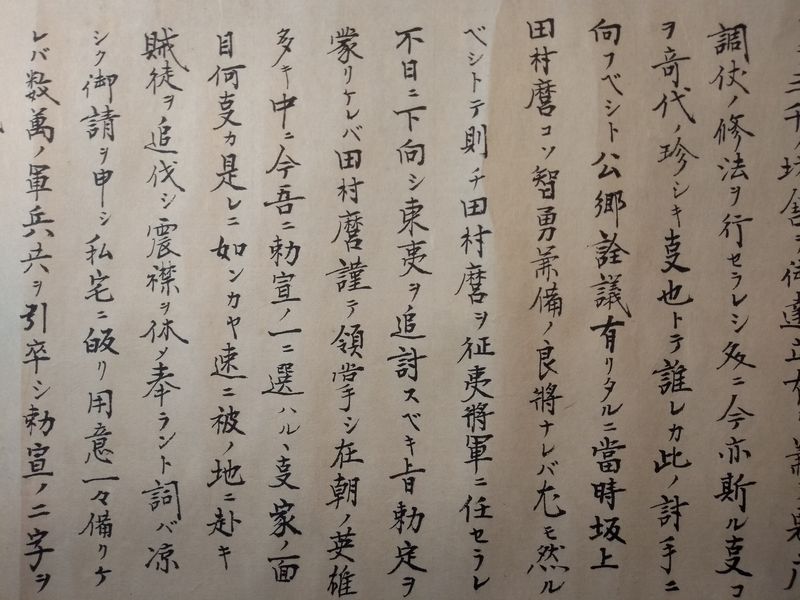 調伏ノ修法ヲ行セラレシ処ニ今亦斯ル叓コ
ヲ竒代ノ珍シキ叓也トテ誰レカ此ノ討手ニ
向フベシト公郷詮議有リタルニ當時坂上
田村麿コソ智勇兼備ノ良將ナレバ尤モ然ル
ベシトテ則チ田村麿ヲ征夷將軍ニ任セラレ
不日ニ下向シ東夷ヲ追討スベキ旨勅定ヲ
蒙リケレバ田村麿謹テ領掌シ在朝ノ英雄
多キ中ニ今吾ニ勅宣ノ一ニ選ハル丶叓家ノ面
目何叓カ是レニ如ンカヤ速ニ被ノ地ニ赴キ
賊徒ヲ追伐シ震襟ヲ休メ奉ラント詞バ凉
シク御請ヲ申シ私宅ニ皈リ用意一々備リケ
レバ数萬ノ軍兵共ヲ引卒シ勅宣ノ二字ヲ